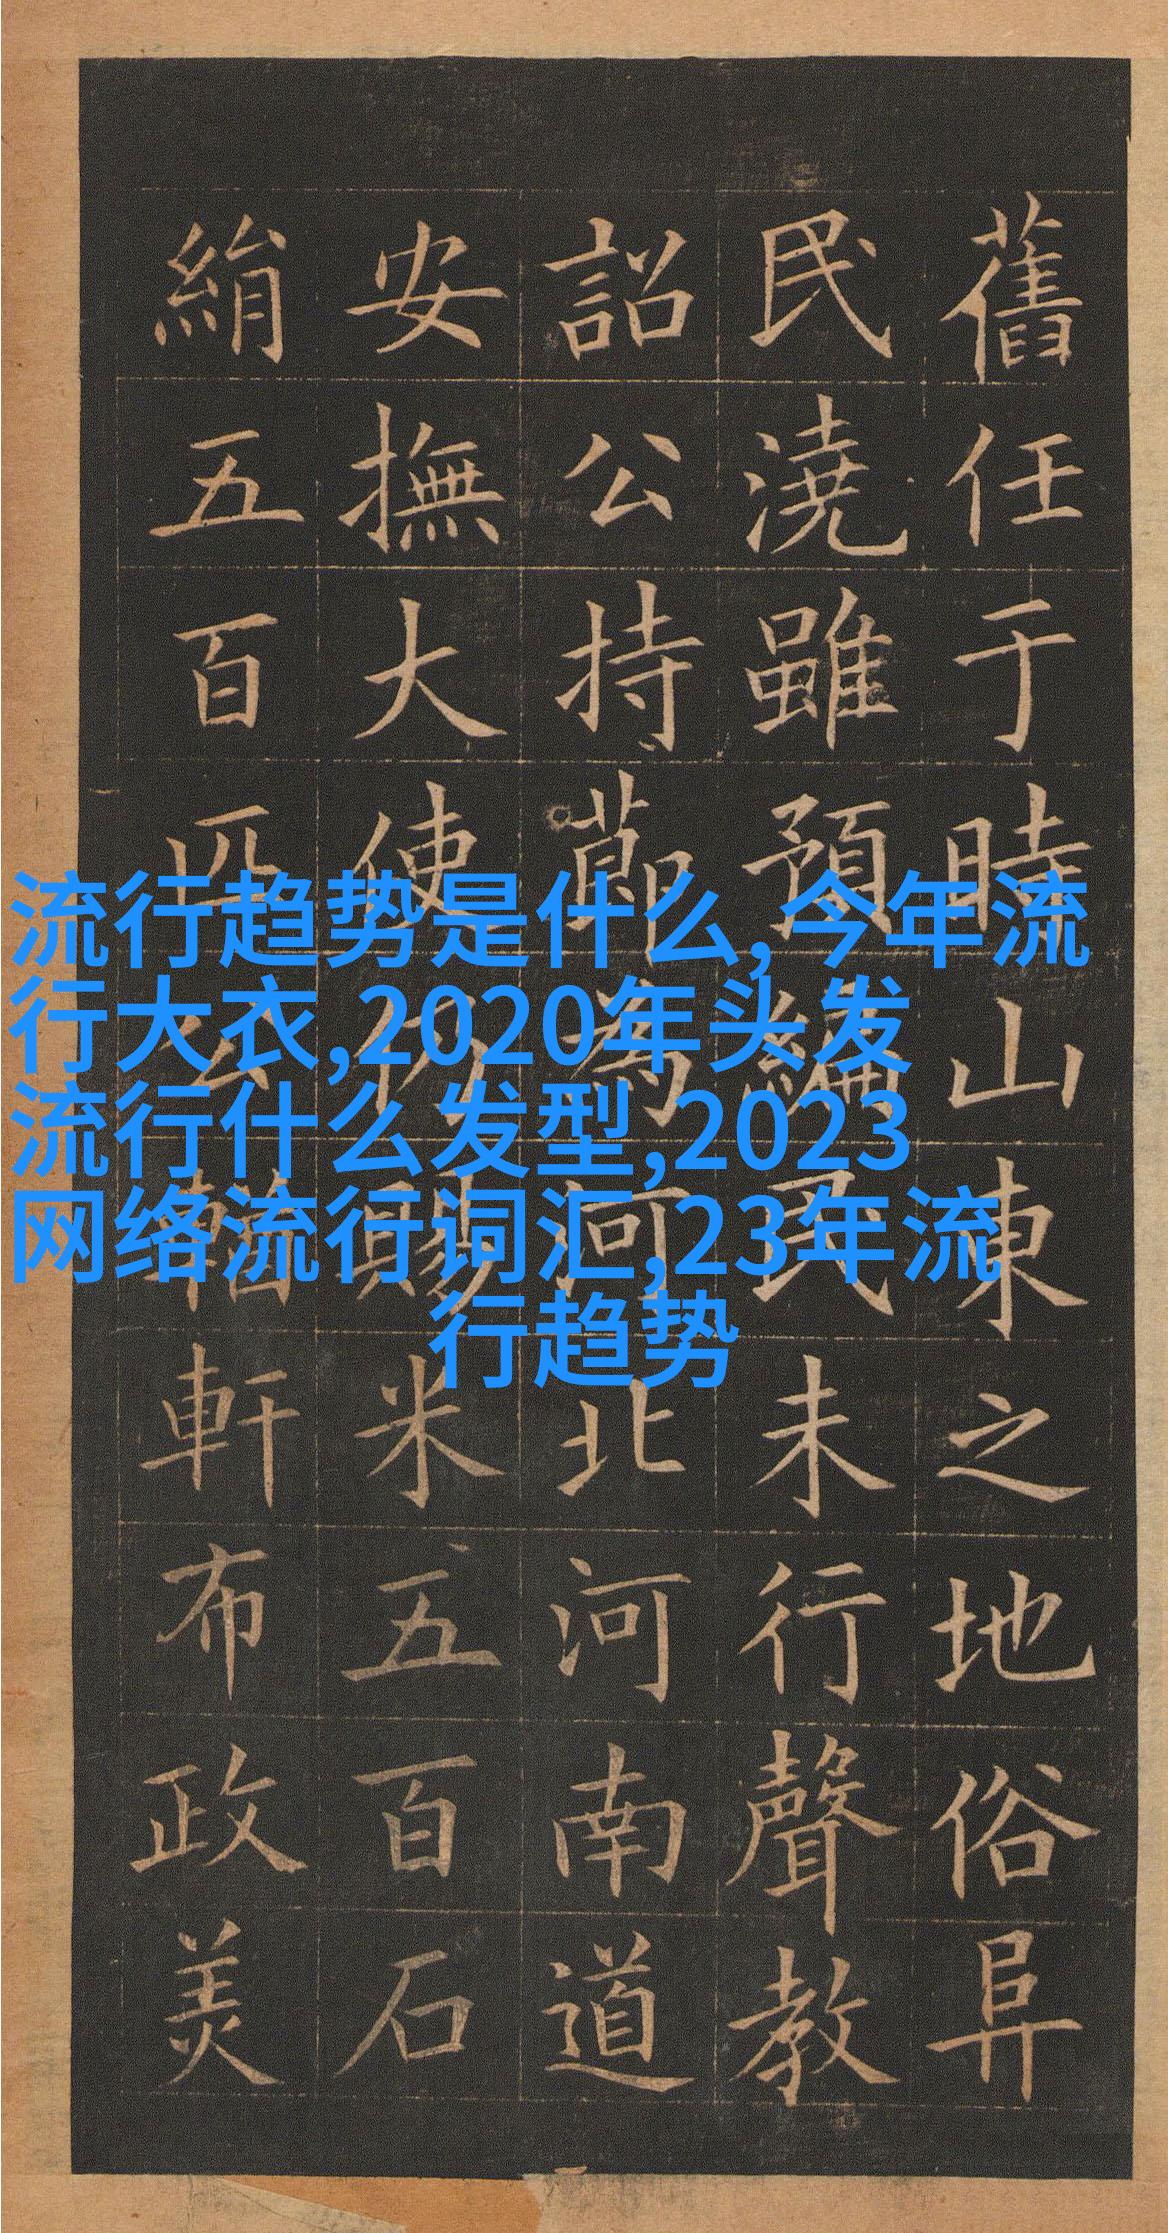 舊任于時山東之地俗阜
民澆雖預編民未行聲教
詔公持節為河北河南道
安撫大使仍賜米五百石
絹五百匹公輶軒布政美
流行趋势是什么,今年流
行大衣,2020年头发
流行什么发型,2023
网络流行词汇,23年流
行趋势